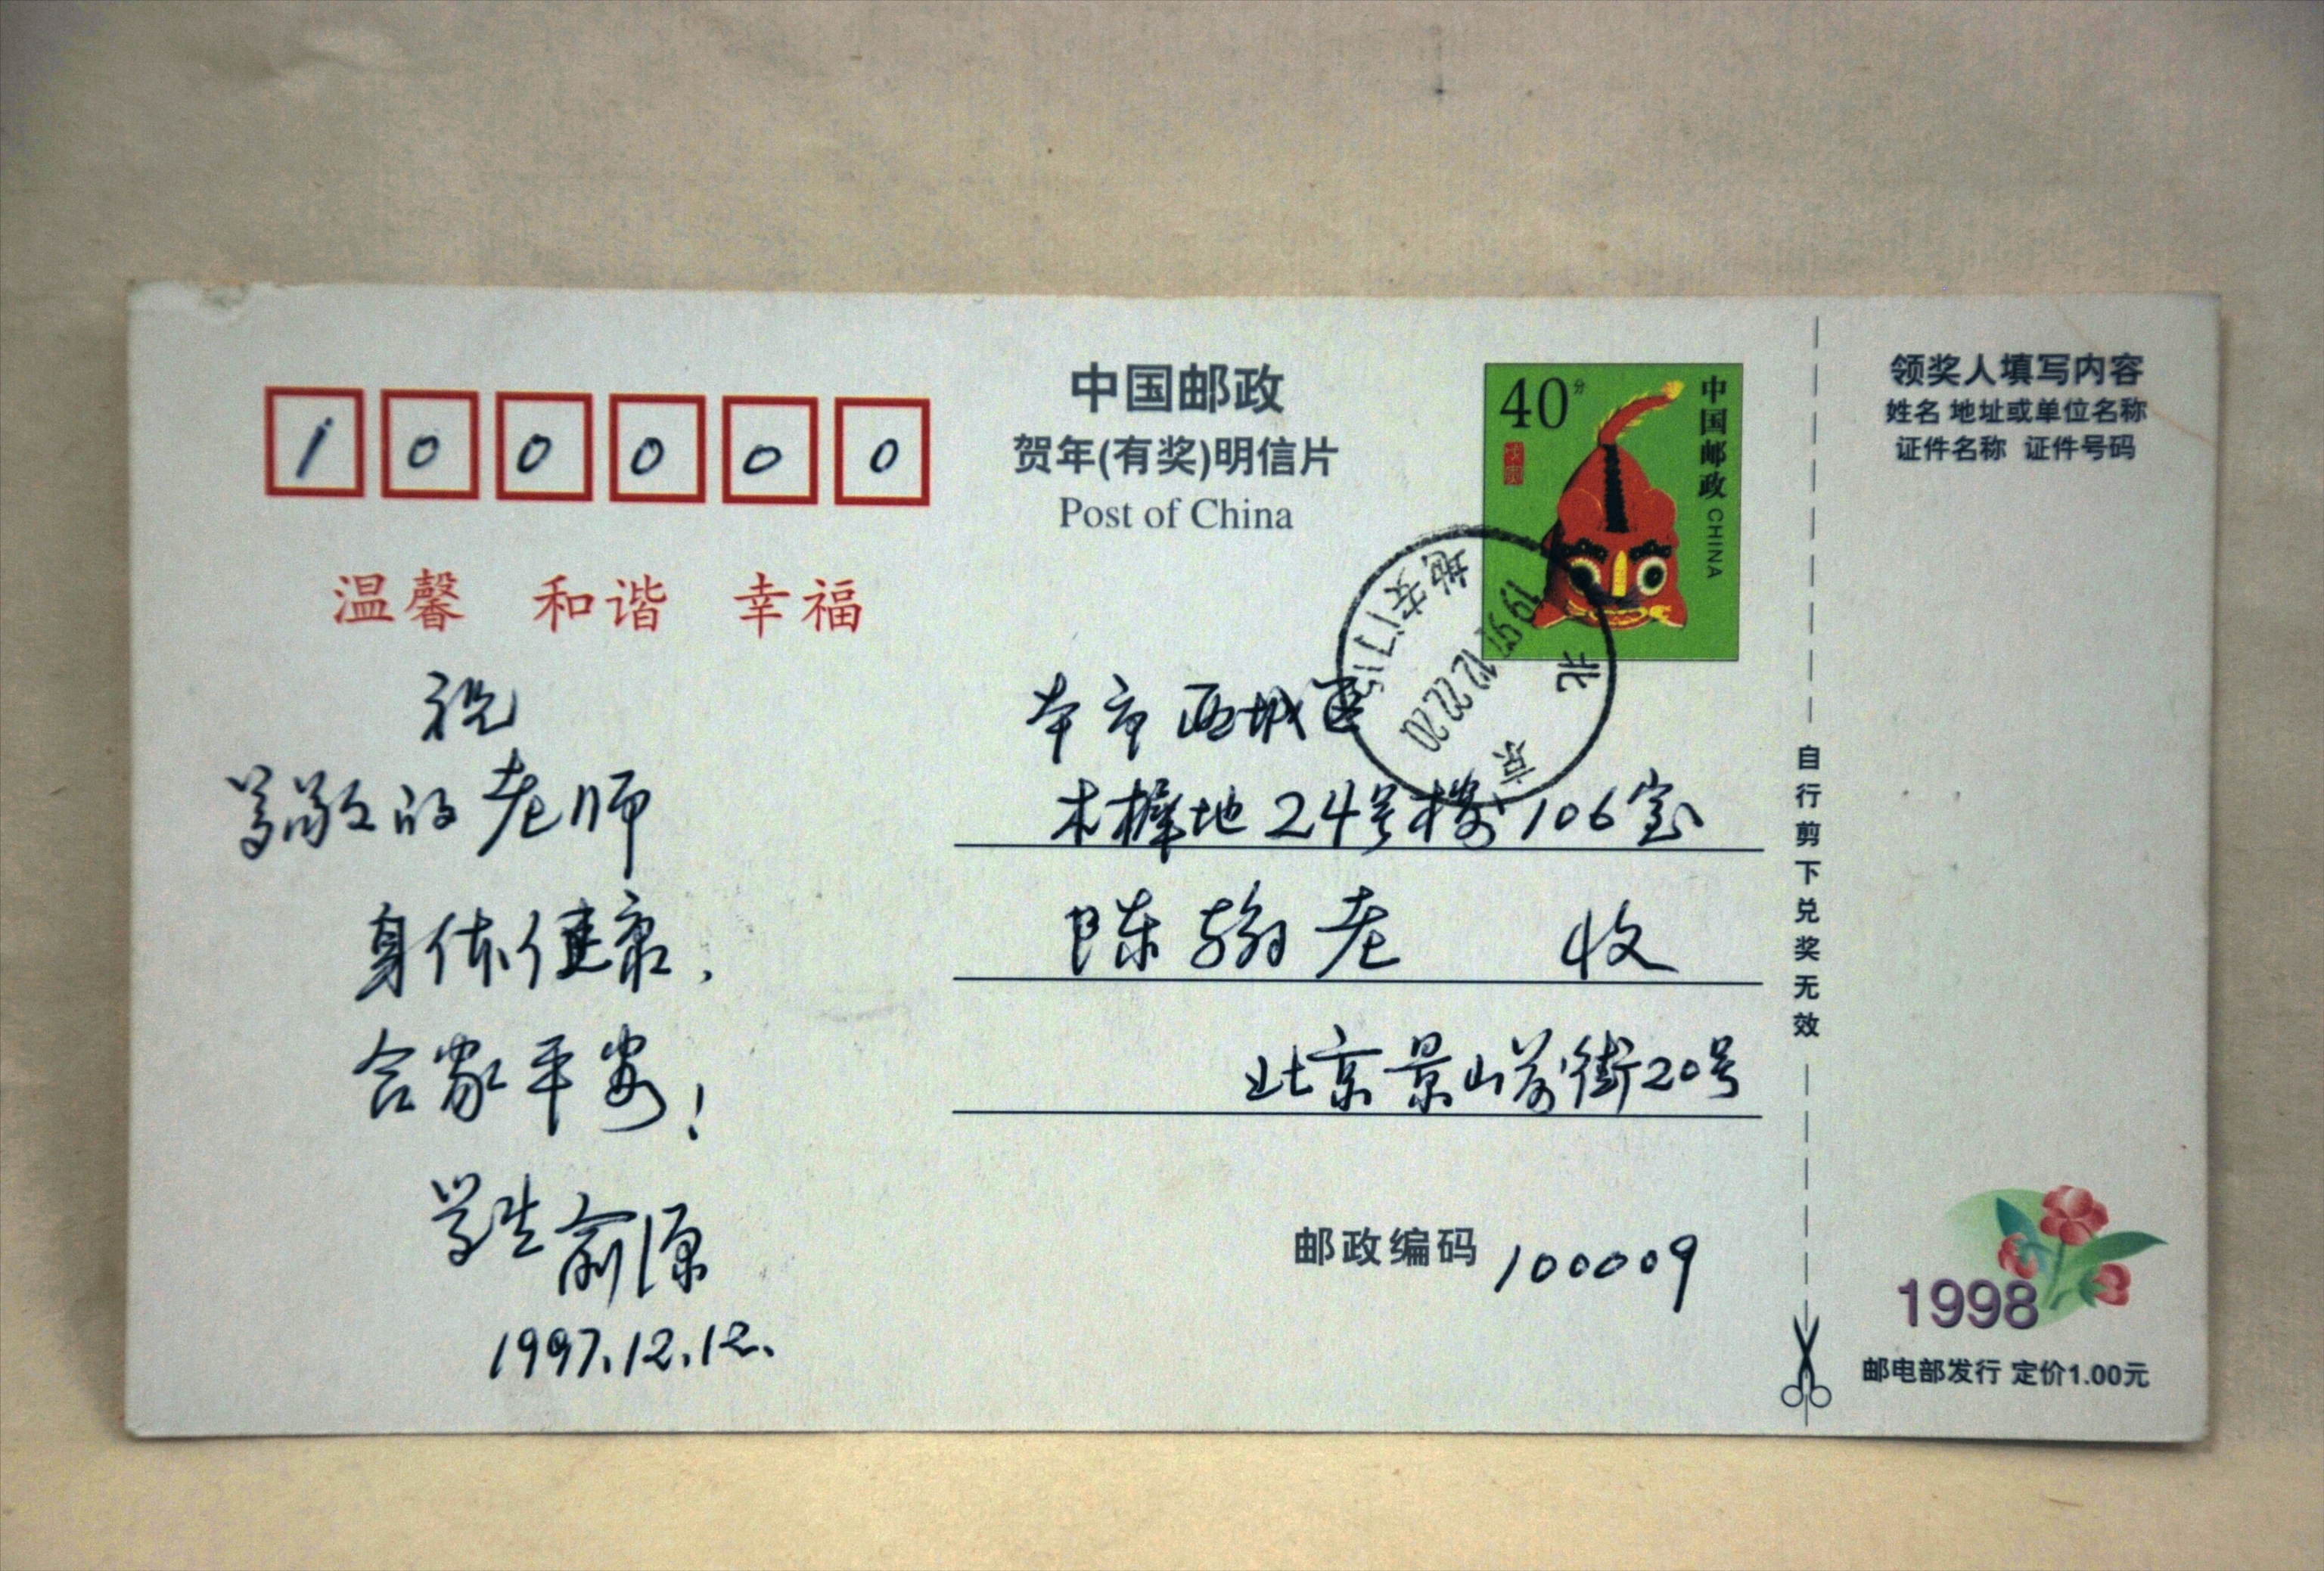 100000
温馨 和谐 幸福
祝
尊敬的老师
身体健康,
合家平安!
学生 俞源
1997.12.12.
中国邮政
贺年(有奖)明信片
Post of China
40分
中国邮政 CHINA
北京
1997.12.22.20
地安门
本市西城区
木樨地24号楼106室
陈翰老 收
北京景山前街20号
邮政编码 100009
自行剪下兑奖无效
领奖人填写内容
姓名 地址或单位名称
证件名称 证件号码
1998
邮电部发行 定价1.00元